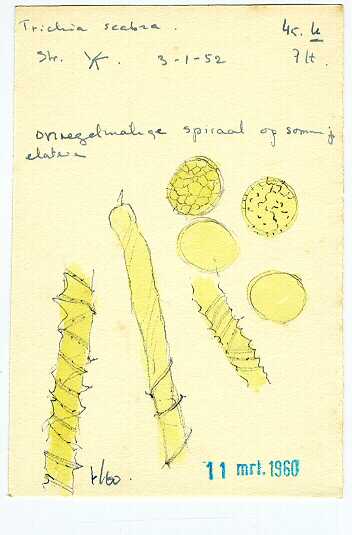 Trichia scabra. 4c. k
Str. 3-1-52 7H.
onregelmatige spiraal op sommige
elateren
1/60.
11 mrt. 1960